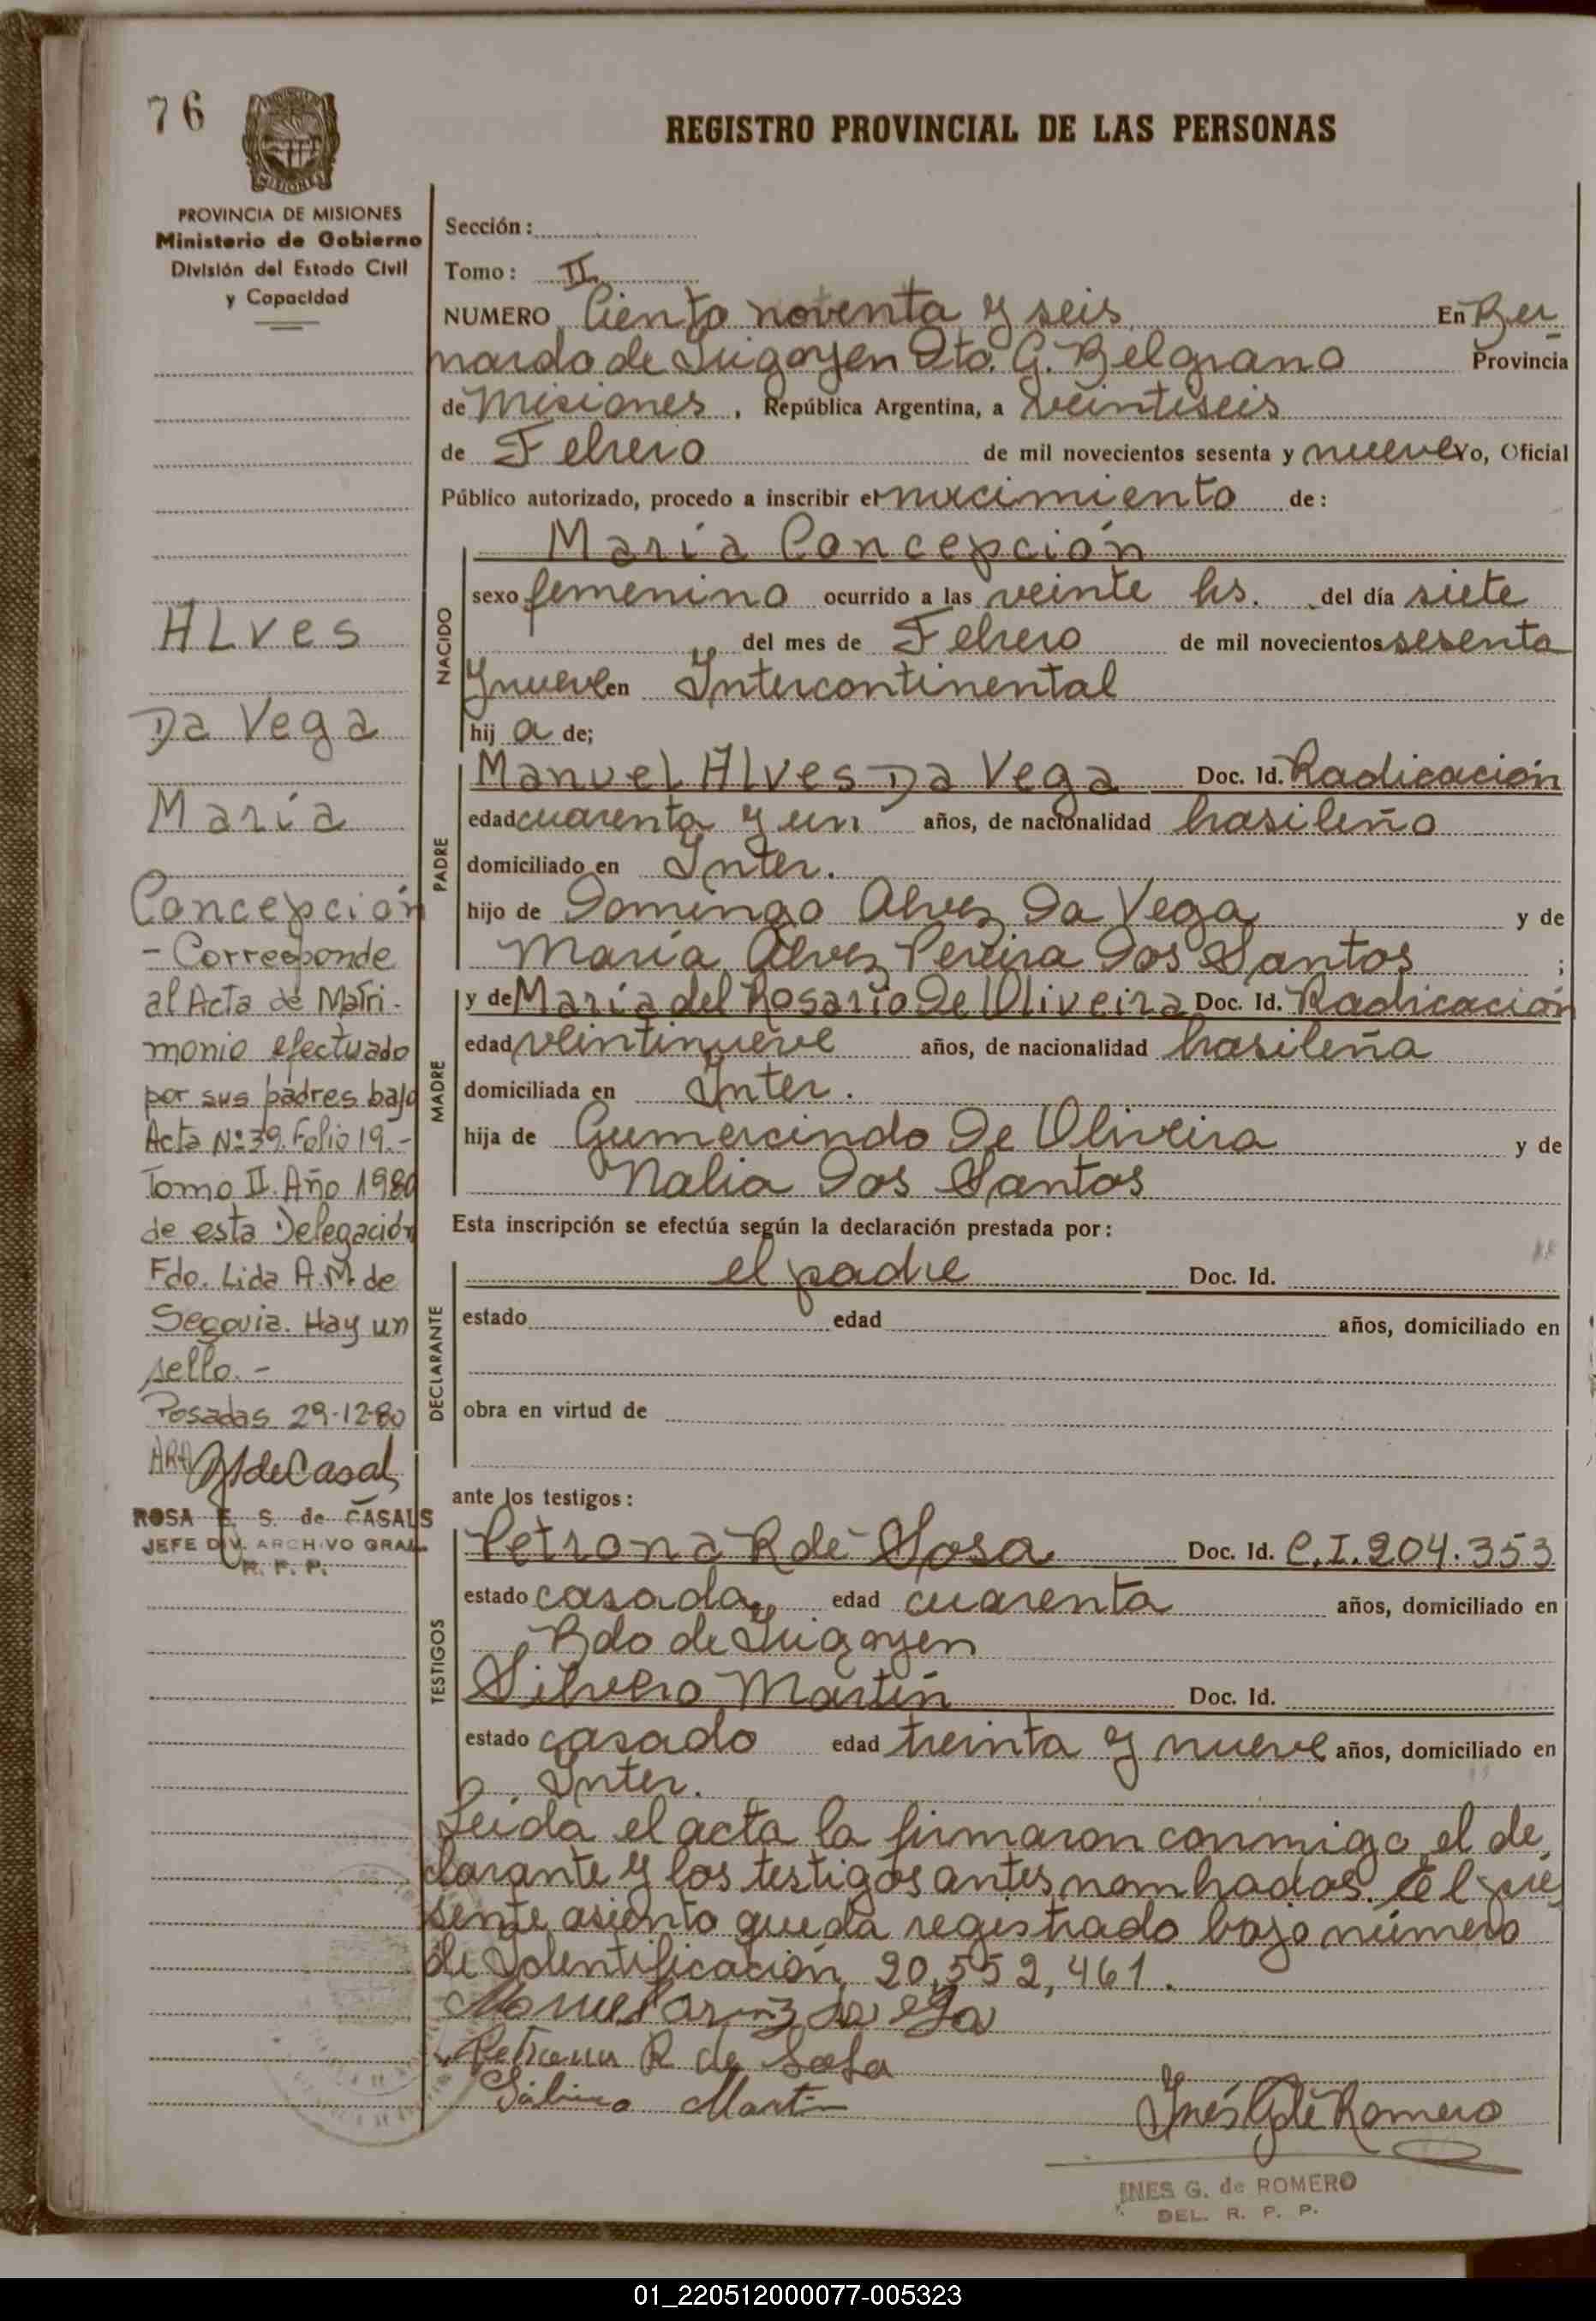 76
REGISTRO PROVINCIAL DE LAS PERSONAS
PROVINCIA DE MISIONES
Ministerio de Gobierno
División del Estado Civil
y Capacidad
Sección:
Tomo: II
NUMERO Ciento noventa y seis En Ber
nardo de Irigoyen Dto. G. Belgrano Provincia
de Misiones, República Argentina, a veintiseis
de Febrero de mil novecientos sesenta y nueve Yo, Oficial
Público autorizado, procedo a inscribir el nacimiento de:
NACIDO
María Concepción
sexo femenino ocurrido a las veinte hs. del día siete
del mes de Febrero de mil novecientos sesenta
y nueve en Intercontinental
hij a de;
PADRE
Manuel Alves Da Vega Doc. Id. Radicación
edad cuarenta y un años, de nacionalidad brasileño
domiciliado en Inter.
hijo de Domingo Alvez Da Vega y de
María Alvez Pereira Dos Santos ;
MADRE
y de María del Rosario De Oliveira Doc. Id. Radicación
edad veintinueve años, de nacionalidad brasileña
domiciliada en Inter.
hija de Gumercindo De Oliveira y de
Nalia Dos Santos
Esta inscripción se efectúa según la declaración prestada por:
DECLARANTE
el padre Doc. Id.
estado edad años, domiciliado en
obra en virtud de
ante los testigos:
TESTIGOS
Petrona R de Sosa Doc. Id. C.I. 204.353
estado casada edad cuarenta años, domiciliado en
Bdo de Irigoyen
Silverio Martin Doc. Id.
estado casado edad treinta y nueve años, domiciliado en
Inter.
Leída el acta la firmaron conmigo el de
clarante y los testigos antes nombrados. El pre
sente asiento queda registrado bajo número
de Identificación 20,552,461.
Petrona R de Sosa
Martin
Inés G de Romero
INES G. de ROMERO
DEL. R. P. P.
ALves
Da Vega
María
Concepción
- Corresponde
al Acta de Matri-
monio efectuado
por sus padres bajo
Acta Nº 39. Folio 19.-
Tomo II. Año 1980
de esta Delegación
Fdo. Lida A. M. de
Segovia. Hay un
sello.-
Posadas 29-12-80
ROSA E. S. de CASALS
JEFE DIV. ARCHIVO GRAL
R. P. P.
01_220512000077-005323